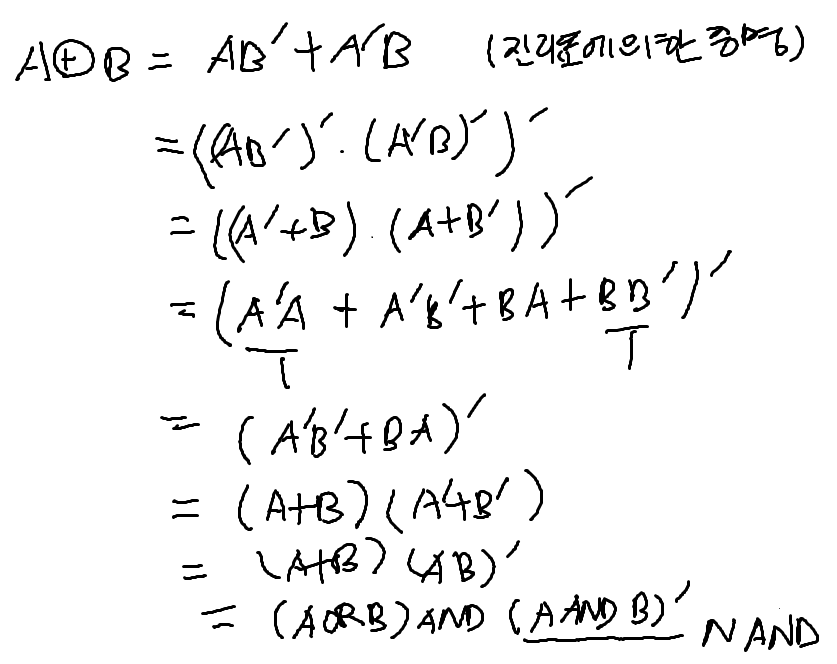 A⊕B = AB' + A'B (진리표에의한 증명)
= ((AB')'·(A'B)')'
= ((A'+B)·(A+B'))'
= (A'A + A'B' + BA + BB')'
T T
= (A'B'+BA)'
= (A+B)(A'+B')
= (A+B)(AB)'
= (A OR B) AND (A AND B)' NAND